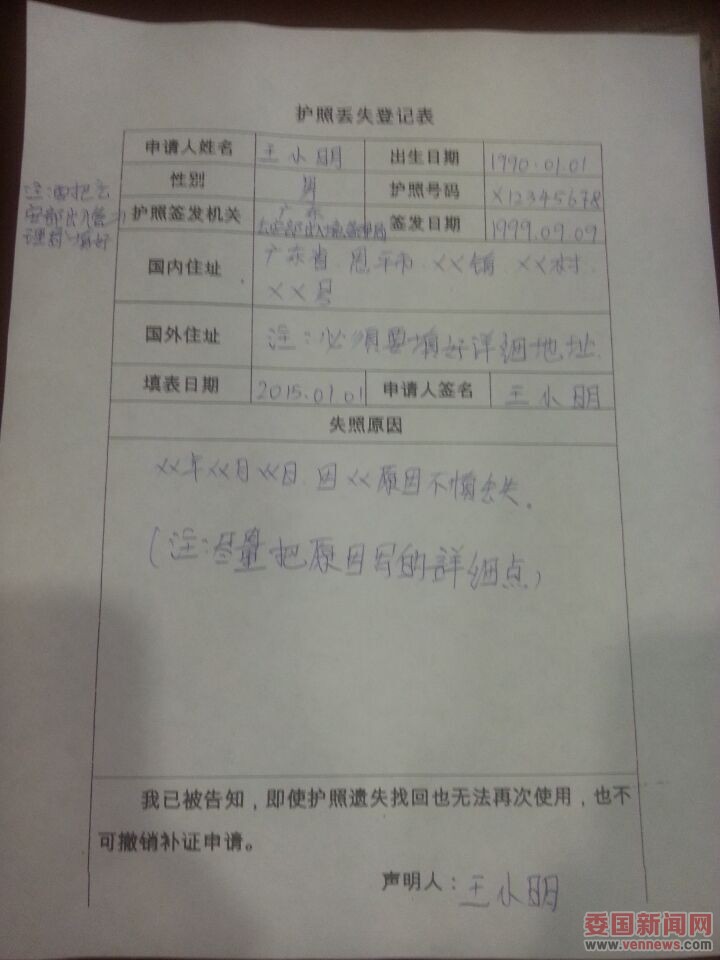 护照丢失登记表
申请人姓名 王小明 出生日期 1990.01.01
性别 男 护照号码 X12345678
护照签发机关 广东 公安部出入境管理局 签发日期 1999.09.09
注:要把公
安部出入境
理局填好
国内住址 广东省.恩平市.××镇.××村.
××号
国外住址 注:必须要填好详细地址.
填表日期 2015.01.01 申请人签名 王小明
失照原因
××年××月××日.因××原因不慎丢失.
(注:尽量把原因写的詳细点)
我已被告知,即使护照遗失找回也无法再次使用,也不
可撤销补证申请。
声明人:王小明
委国新闻网
www.vennews.com